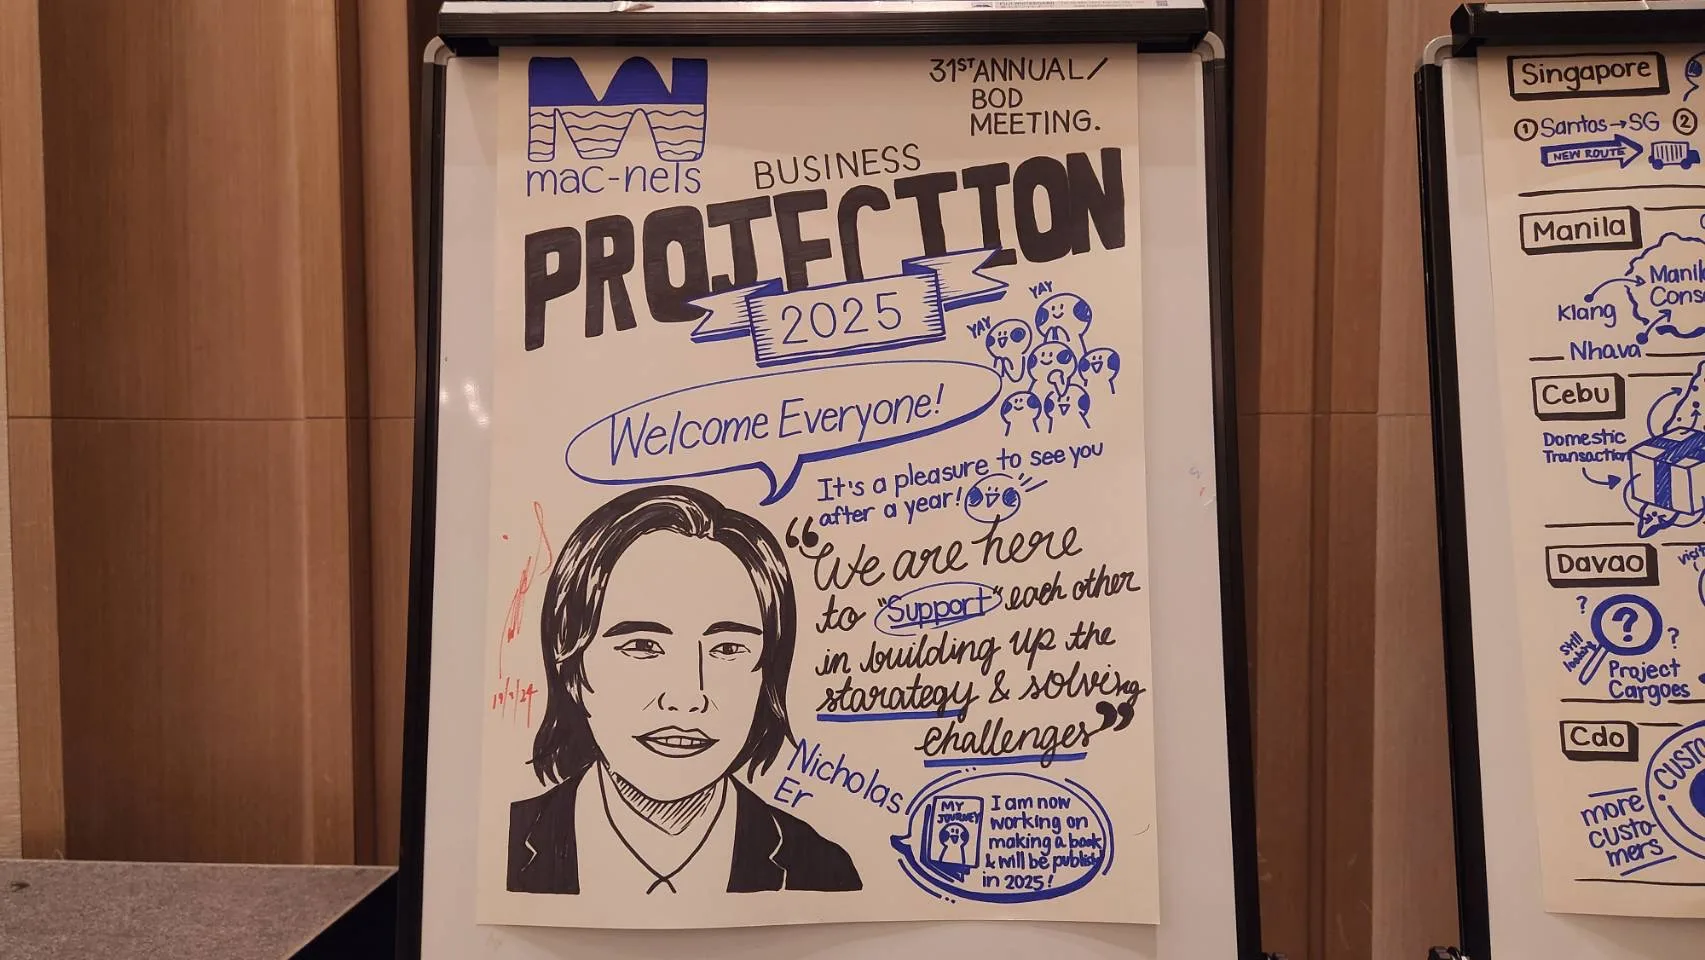 mac-nels
31ST ANNUAL/
BOD
MEETING.
BUSINESS
PROJECTION
2025
YAY
YAY
Welcome Everyone!
It's a pleasure to see you
after a year!
“We are here
to "Support" each other
in building up the
starategy & solving
challenges”
Nicholas
Er
MY
JOURNEY
I am now
working on
making a book
& will be publish
in 2025!
Singapore
① Santos→SG ②
NEW ROUTE
Manila
Klang
Nhava
Cebu
Domestic
Transaction
Davao
?
?
?
Still
looking
Project
Cargoes
Cdo
more
custo-
mers